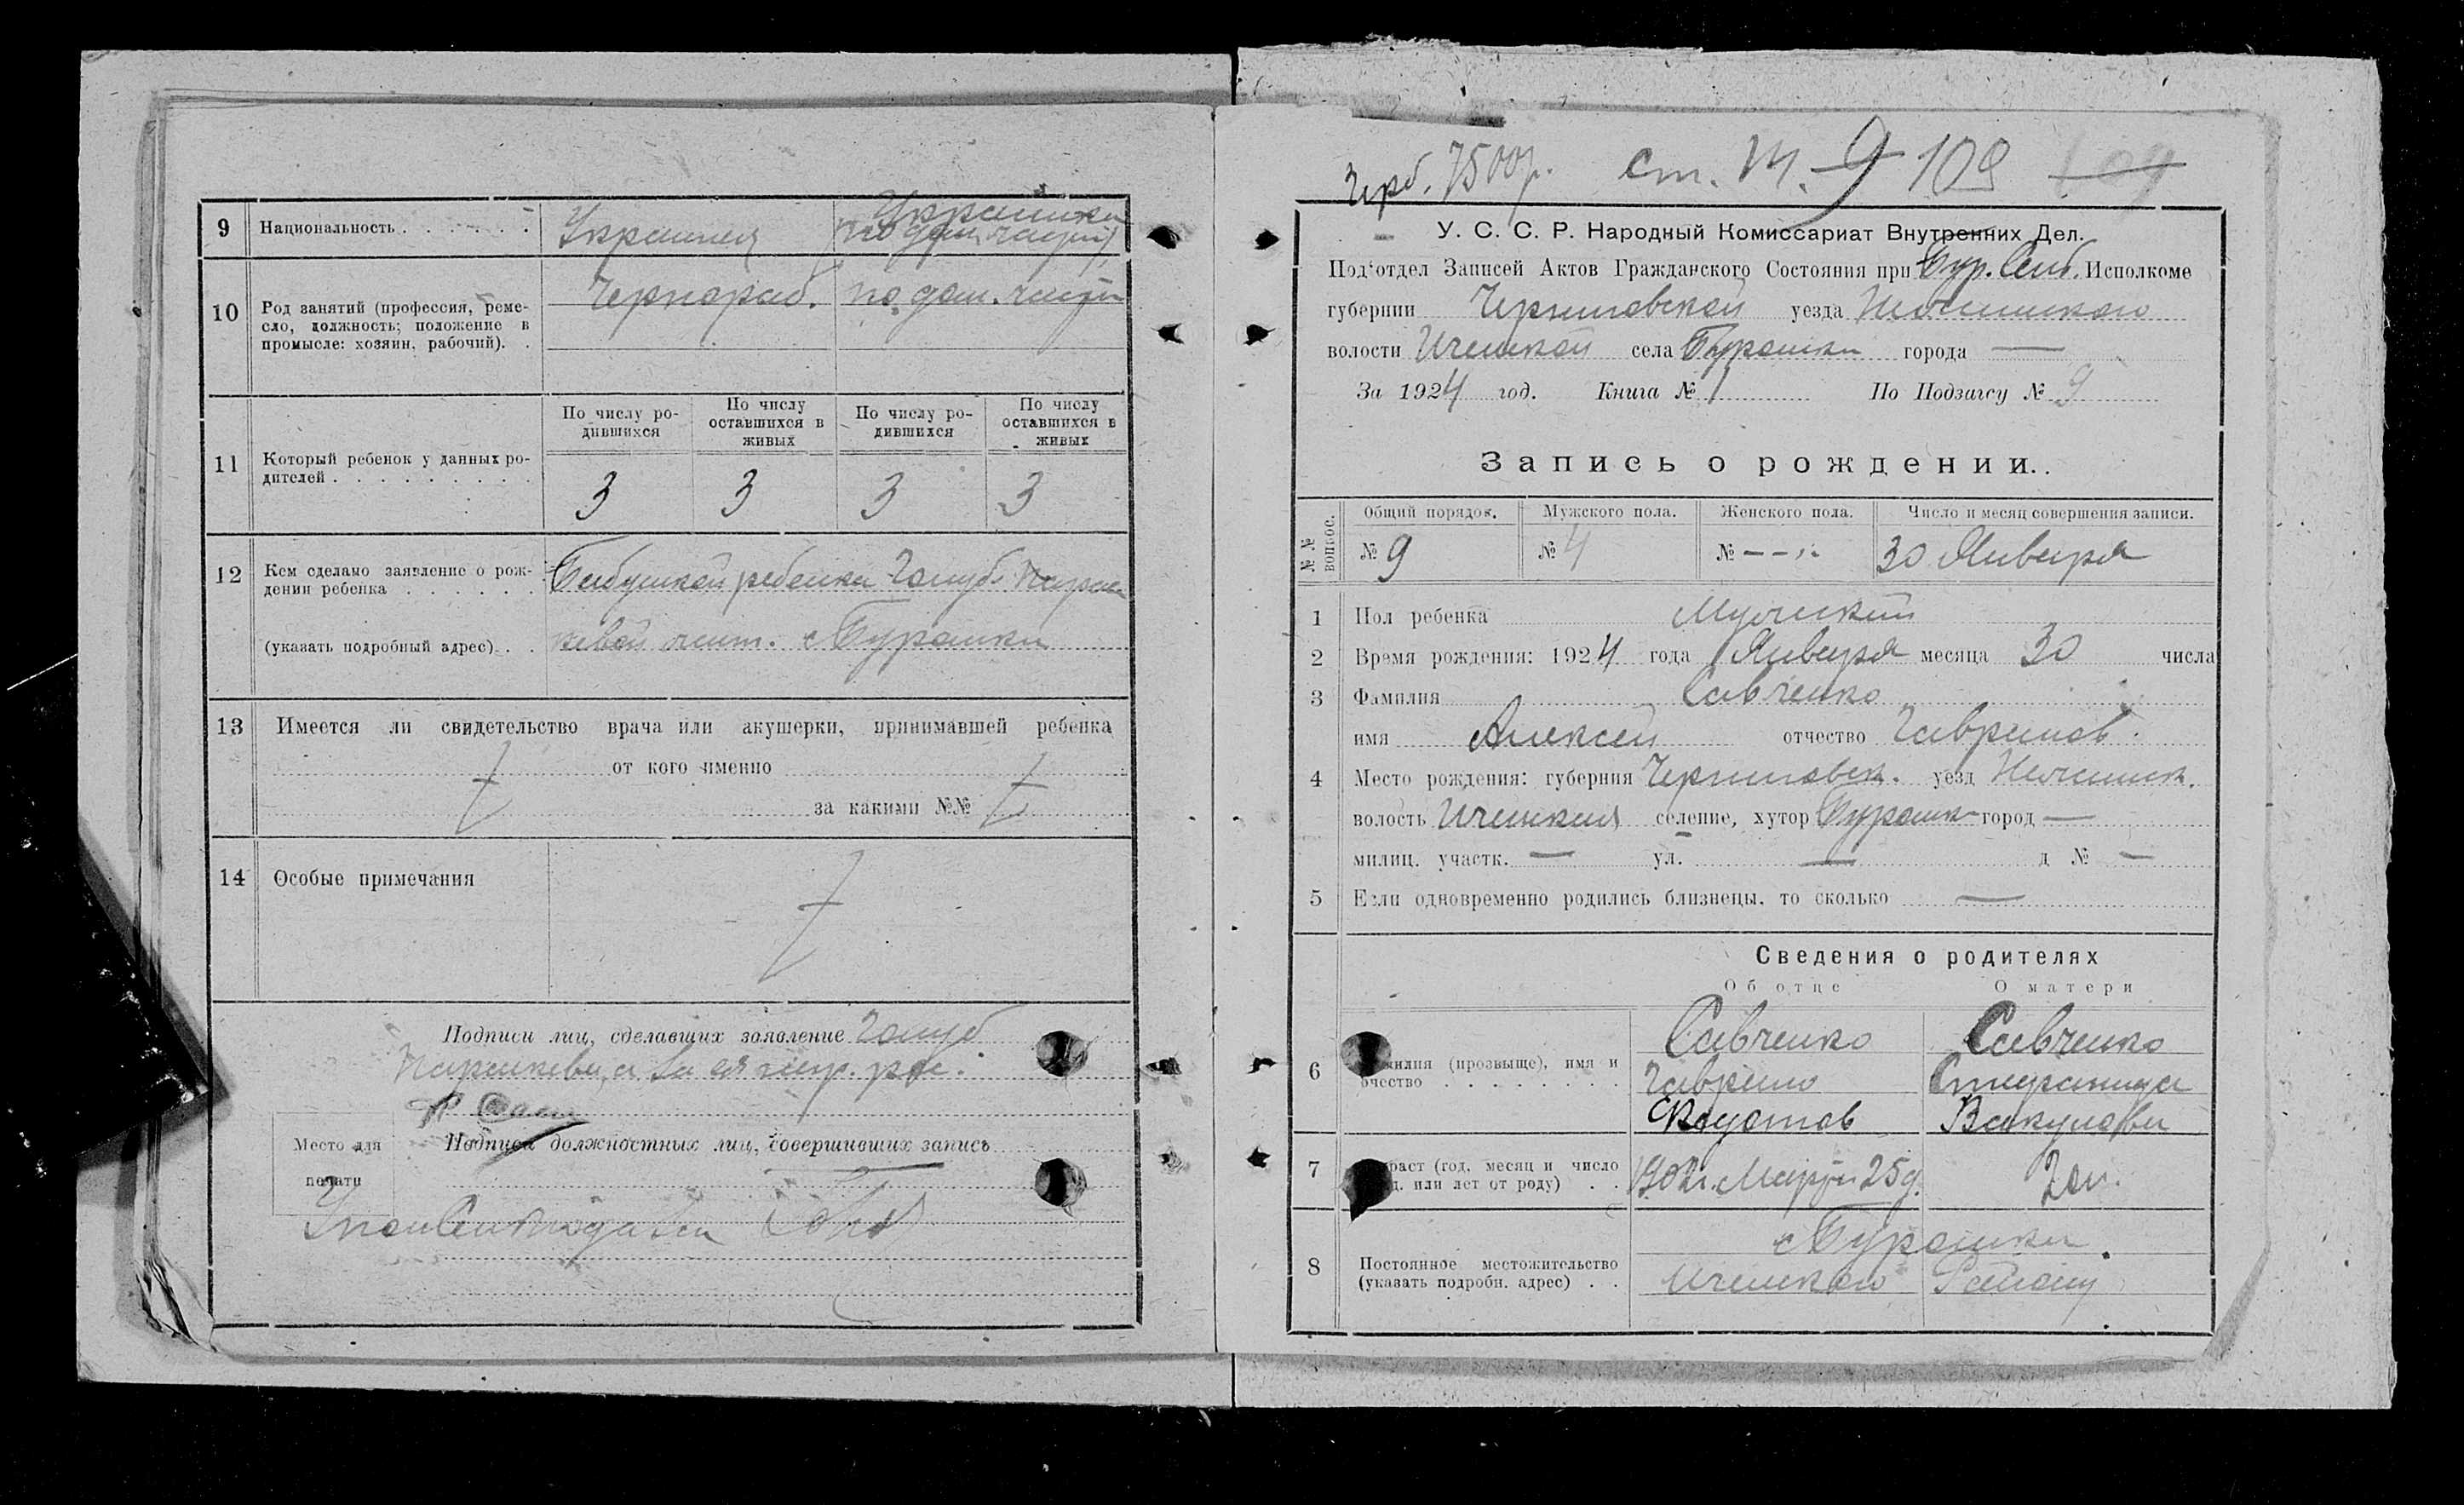 9 Национальность . . . . . . Украинец Украинка
10 Род занятий (профессия, реме-
сло, должность; положение в
промысле: хозяин, рабочий). . Чернораб. по дом. части
11 Который ребенок у данных ро-
дителей . . . . . . . . .
По числу ро-
дившихся
По числу
оставшихся в
живых
По числу ро-
дившихся
По числу
оставшихся в
живых
3 3 3 3
12 Кем сделано заявление о рож-
дении ребенка . . . . . . Бабушкой ребенка Голуб Парас
(указать подробный адрес) . . кевой жит. с Бурамки
13 Имеется ли свидетельство врача или акушерки, принимавшей ребенка
от кого именно
за какими №№
14 Особые примечания
Подписи лиц, сделавших заявление Голуб
Параскева, а за
Подписи должностных лиц, совершивших запись
Место для
печати
Герб. 7500р. ст. 9 109 109
У. С. С. Р. Народный Комиссариат Внутренних Дел.
Под'отдел Записей Актов Гражданского Состояния при Бур. Сель. Исполкоме
губернии Черниговской уезда Нежинского
волости Иченской села Бурамки города —
За 1924 год. Книга № 1 По Подзагсу № 9
Запись о рождении.
№ № вопрос.
Общий порядок. Мужского пола. Женского пола. Число и месяц совершения записи.
№ 9 № 4 № — — 30 Января
1 Пол ребенка Мужской
2 Время рождения: 1924 года Января месяца 30 числа
3 Фамилия Савченко
имя Алексей отчество Гаврилов.
4 Место рождения: губерния Черниговск. уезд Нежинск.
волость Иченская селение, хутор Бурамк город —
милиц. участк. — ул. — д № —
5 Если одновременно родились близнецы, то сколько —
Сведения о родителях
Об отце О матери
6 милия (прозвыще), имя и
очество . . . . . . . .
Савченко Савченко
Гаврило
Вакулова
7 раст (год, месяц и число
д. или лет от роду) . . 1902г. Марта 25д.
8 Постоянное местожительство
(указать подробн. адрес) . .
с Бурамки.
Иченского Району